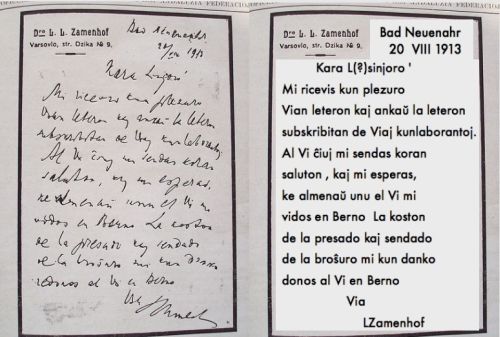 Dro L. L. Zamenhof
Varsovio, str. Dzika № 9.
Bad Neuenahr
20/VIII 1913
Kara
Mi ricevis kun plezuro
Vian leteron kaj ankaŭ la leteron
subskribitan de Viaj kunlaborantoj.
Al Vi ĉiuj mi sendas koran
saluton, kaj mi esperas,
ke almenaŭ unu el Vi mi
vidos en Berno La koston
de la presado kaj sendado
de la broŝuro mi kun danko
redonos al Vi en Berno
Via LZamenhof
Bad Neuenahr
20 VIII 1913
Kara L(?)sinjoro '
Mi ricevis kun plezuro
Vian leteron kaj ankaŭ la leteron
subskribitan de Viaj kunlaborantoj.
Al Vi ĉiuj mi sendas koran
saluton , kaj mi esperas,
ke almenaŭ unu el Vi mi
vidos en Berno La koston
de la presado kaj sendado
de la broŝuro mi kun danko
donos al Vi en Berno
Via
LZamenhof